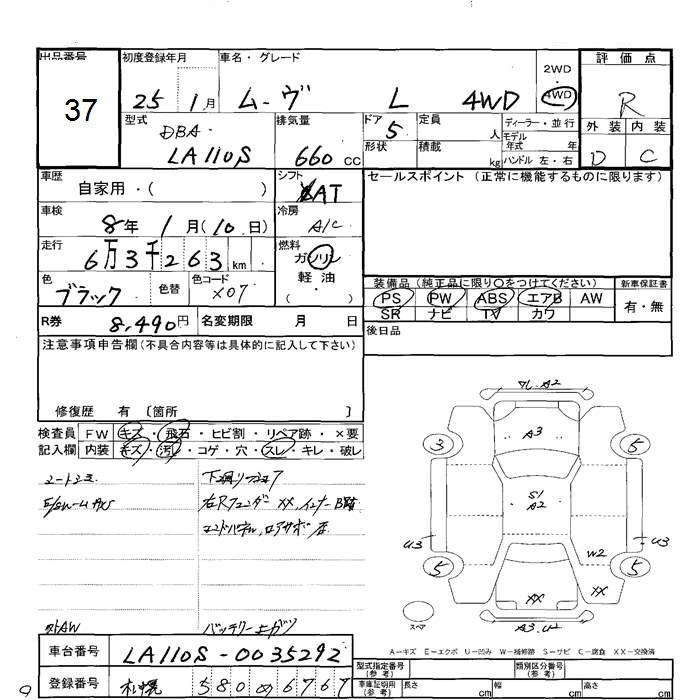 出品番号 初度登録年月 車名・グレード 評価点
37
25 1月 ムーヴ L 4WD
2WD
4WD
R
型式 DBA- LA110S
排気量 660 cc
ドア 5
形状
定員 人
積載 kg
ディーラー・並行
モデル年式 年
ハンドル 左・右
外装 内装
D C
車歴 自家用・( )
シフト AT
セールスポイント (正常に機能するものに限ります)
車検 8年 1月(10日)
冷房 A/C
走行 6万3千263km
燃料 ガソリン
軽油
( ・ )
色 ブラック 色替 色コード X07
装備品(純正品に限り〇をつけてください) 新車保証書
PS PW ABS エアB AW
SR ナビ TV カワ
有・無
R券 8,490円 名変期限 月 日
後日品
注意事項申告欄(不具合内容等は具体的に記入して下さい)
修復歴 有 〔箇所 〕
検査員 FW キズ・飛石・ヒビ割・リペア跡・×要
記入欄 内装 キズ・汚れ・コゲ・穴・スレ・キレ・破レ
右Rフェンダー XX,インナーB跡
エンドパネル,ロアサポ
社外AW バッテリー上ガリ
A2
3 A3 5
S1
A2
U3 W2 U3
5 XX XX 5
A3.U2
スペア
A-キズ E-エクボ U-凹み W-補修跡 S-サビ C-腐食 XX-交換済
車台番号 LA110S-0035292
登録番号 札幌 580 6767
型式指定番号(参考) 類別区分番号(参考)
車庫証明用(参考) 長さ cm 幅 cm 高さ cm